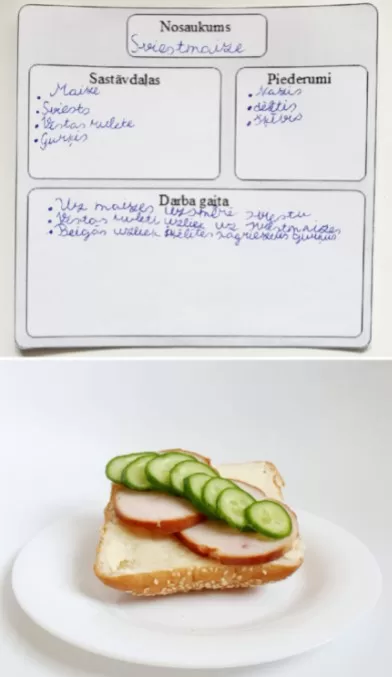 Nosaukums
Sviestmaize
Sastāvdaļas
• Maize
• Sviests
• Vistas rulete
• Gurķis
Piederumi
• Nazis
• Dēlis
• Šķīvis
Darba gaita
• Uz maizes uzsmērē sviestu
• Vistas ruleti uzliek uz sviestmaizes
• Beigās uzliek šķēlītēs sagrieztus gurķus